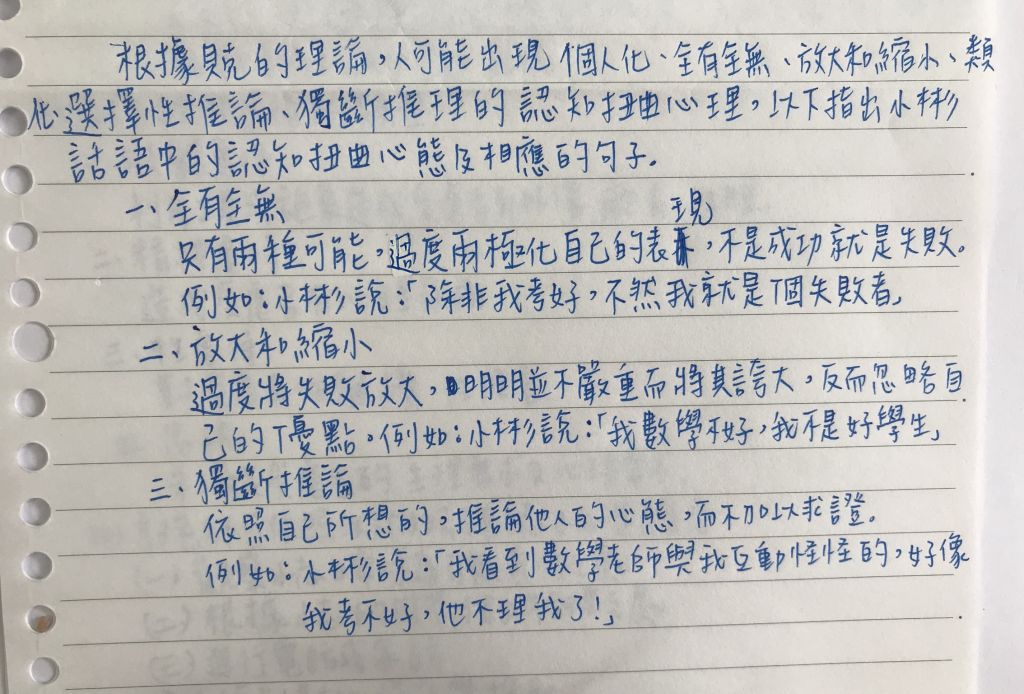 根據貝克的理論,人可能出現個人化、全有全無、放大和縮小、類
化、選擇性推論、獨斷推理的認知扭曲心理,以下指出小彬
話語中的認知扭曲心態及相應的句子。
一、全有全無
現
只有兩種可能,過度兩極化自己的表,不是成功就是失敗。
例如:小彬說:「除非我考好,不然我就是個失敗者」
二、放大和縮小
過度將失敗放大,明明並不嚴重而將其誇大,反而忽略自
己的優點。例如:小彬說:「我數學不好,我不是好學生」
三、獨斷推論
依照自己所想的,推論他人的心態,而不加以求證。
例如:小彬說:「我看到數學老師與我互動怪怪的,好像
我考不好,他不理我了!」